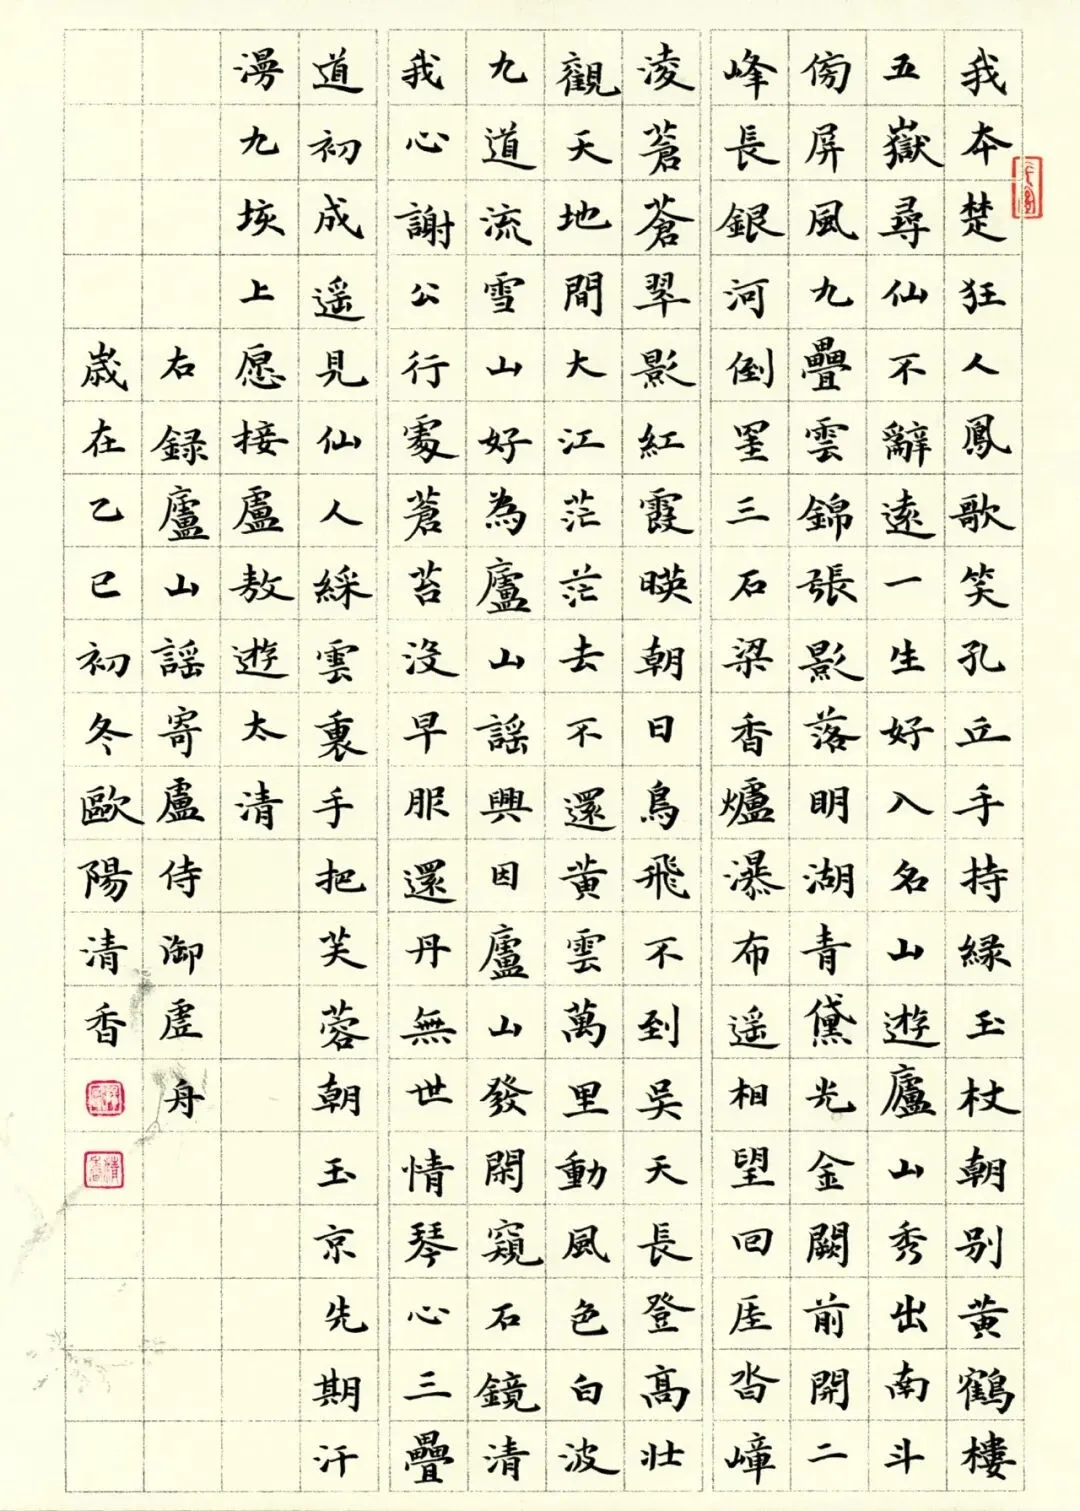 我本楚狂人鳳歌笑孔丘手持緑玉杖朝别黄鶴樓
五嶽尋仙不辭遠一生好入名山遊廬山秀出南斗
傍屏風九疊雲錦張影落明湖青黛光金闕前開二
峰長銀河倒罣三石梁香爐瀑布遥相望回厓沓嶂
淩蒼蒼翠影紅霞暎朝日鳥飛不到吴天長登高壯
觀天地間大江茫茫去不還黄雲萬里動風色白波
九道流雪山好為廬山謡興因廬山發閑窺石鏡清
我心謝公行處蒼苔没早服還丹無世情琴心三疊
道初成遥見仙人綵雲裏手把芙蓉朝玉京先期汗
漫九垓上愿接盧敖遊太清
右録廬山謡寄盧侍御虚舟
歳在乙巳初冬歐陽清香
清香